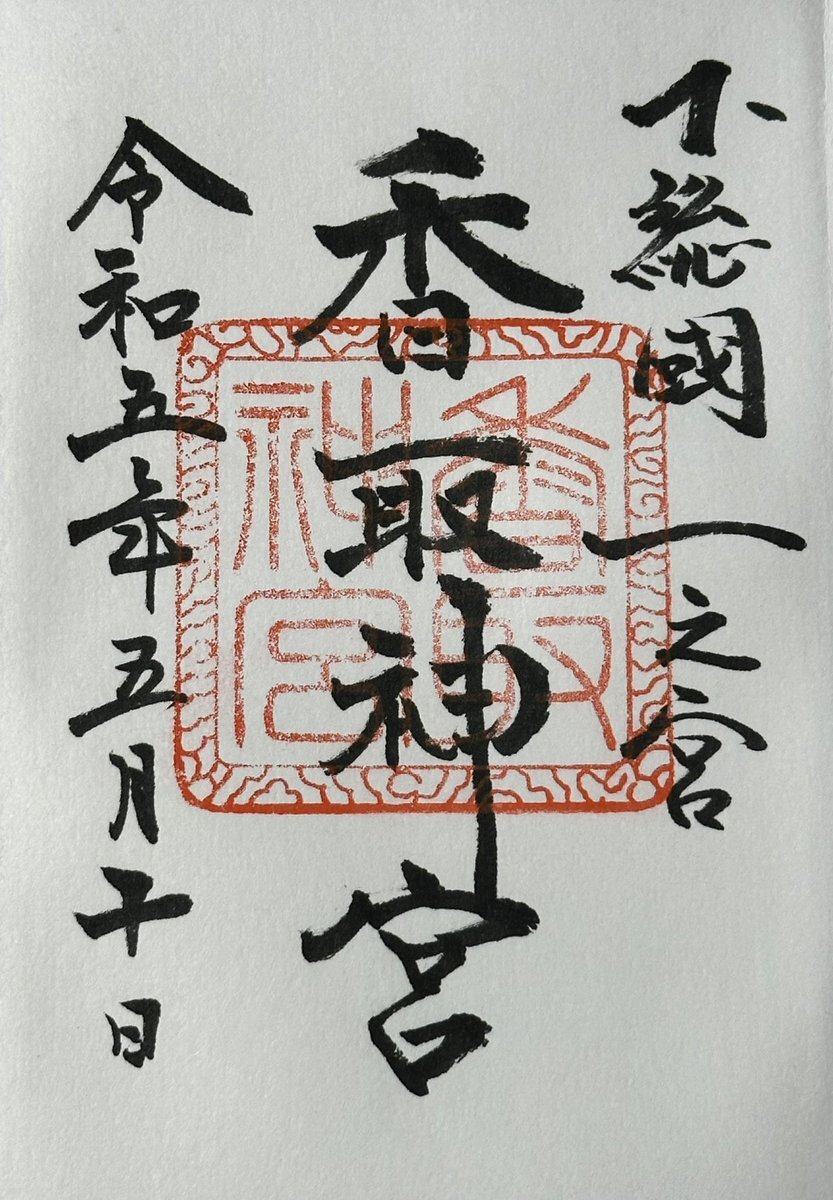 下總國一之宮
香取神宮
香取神宮
令和五年五月十日